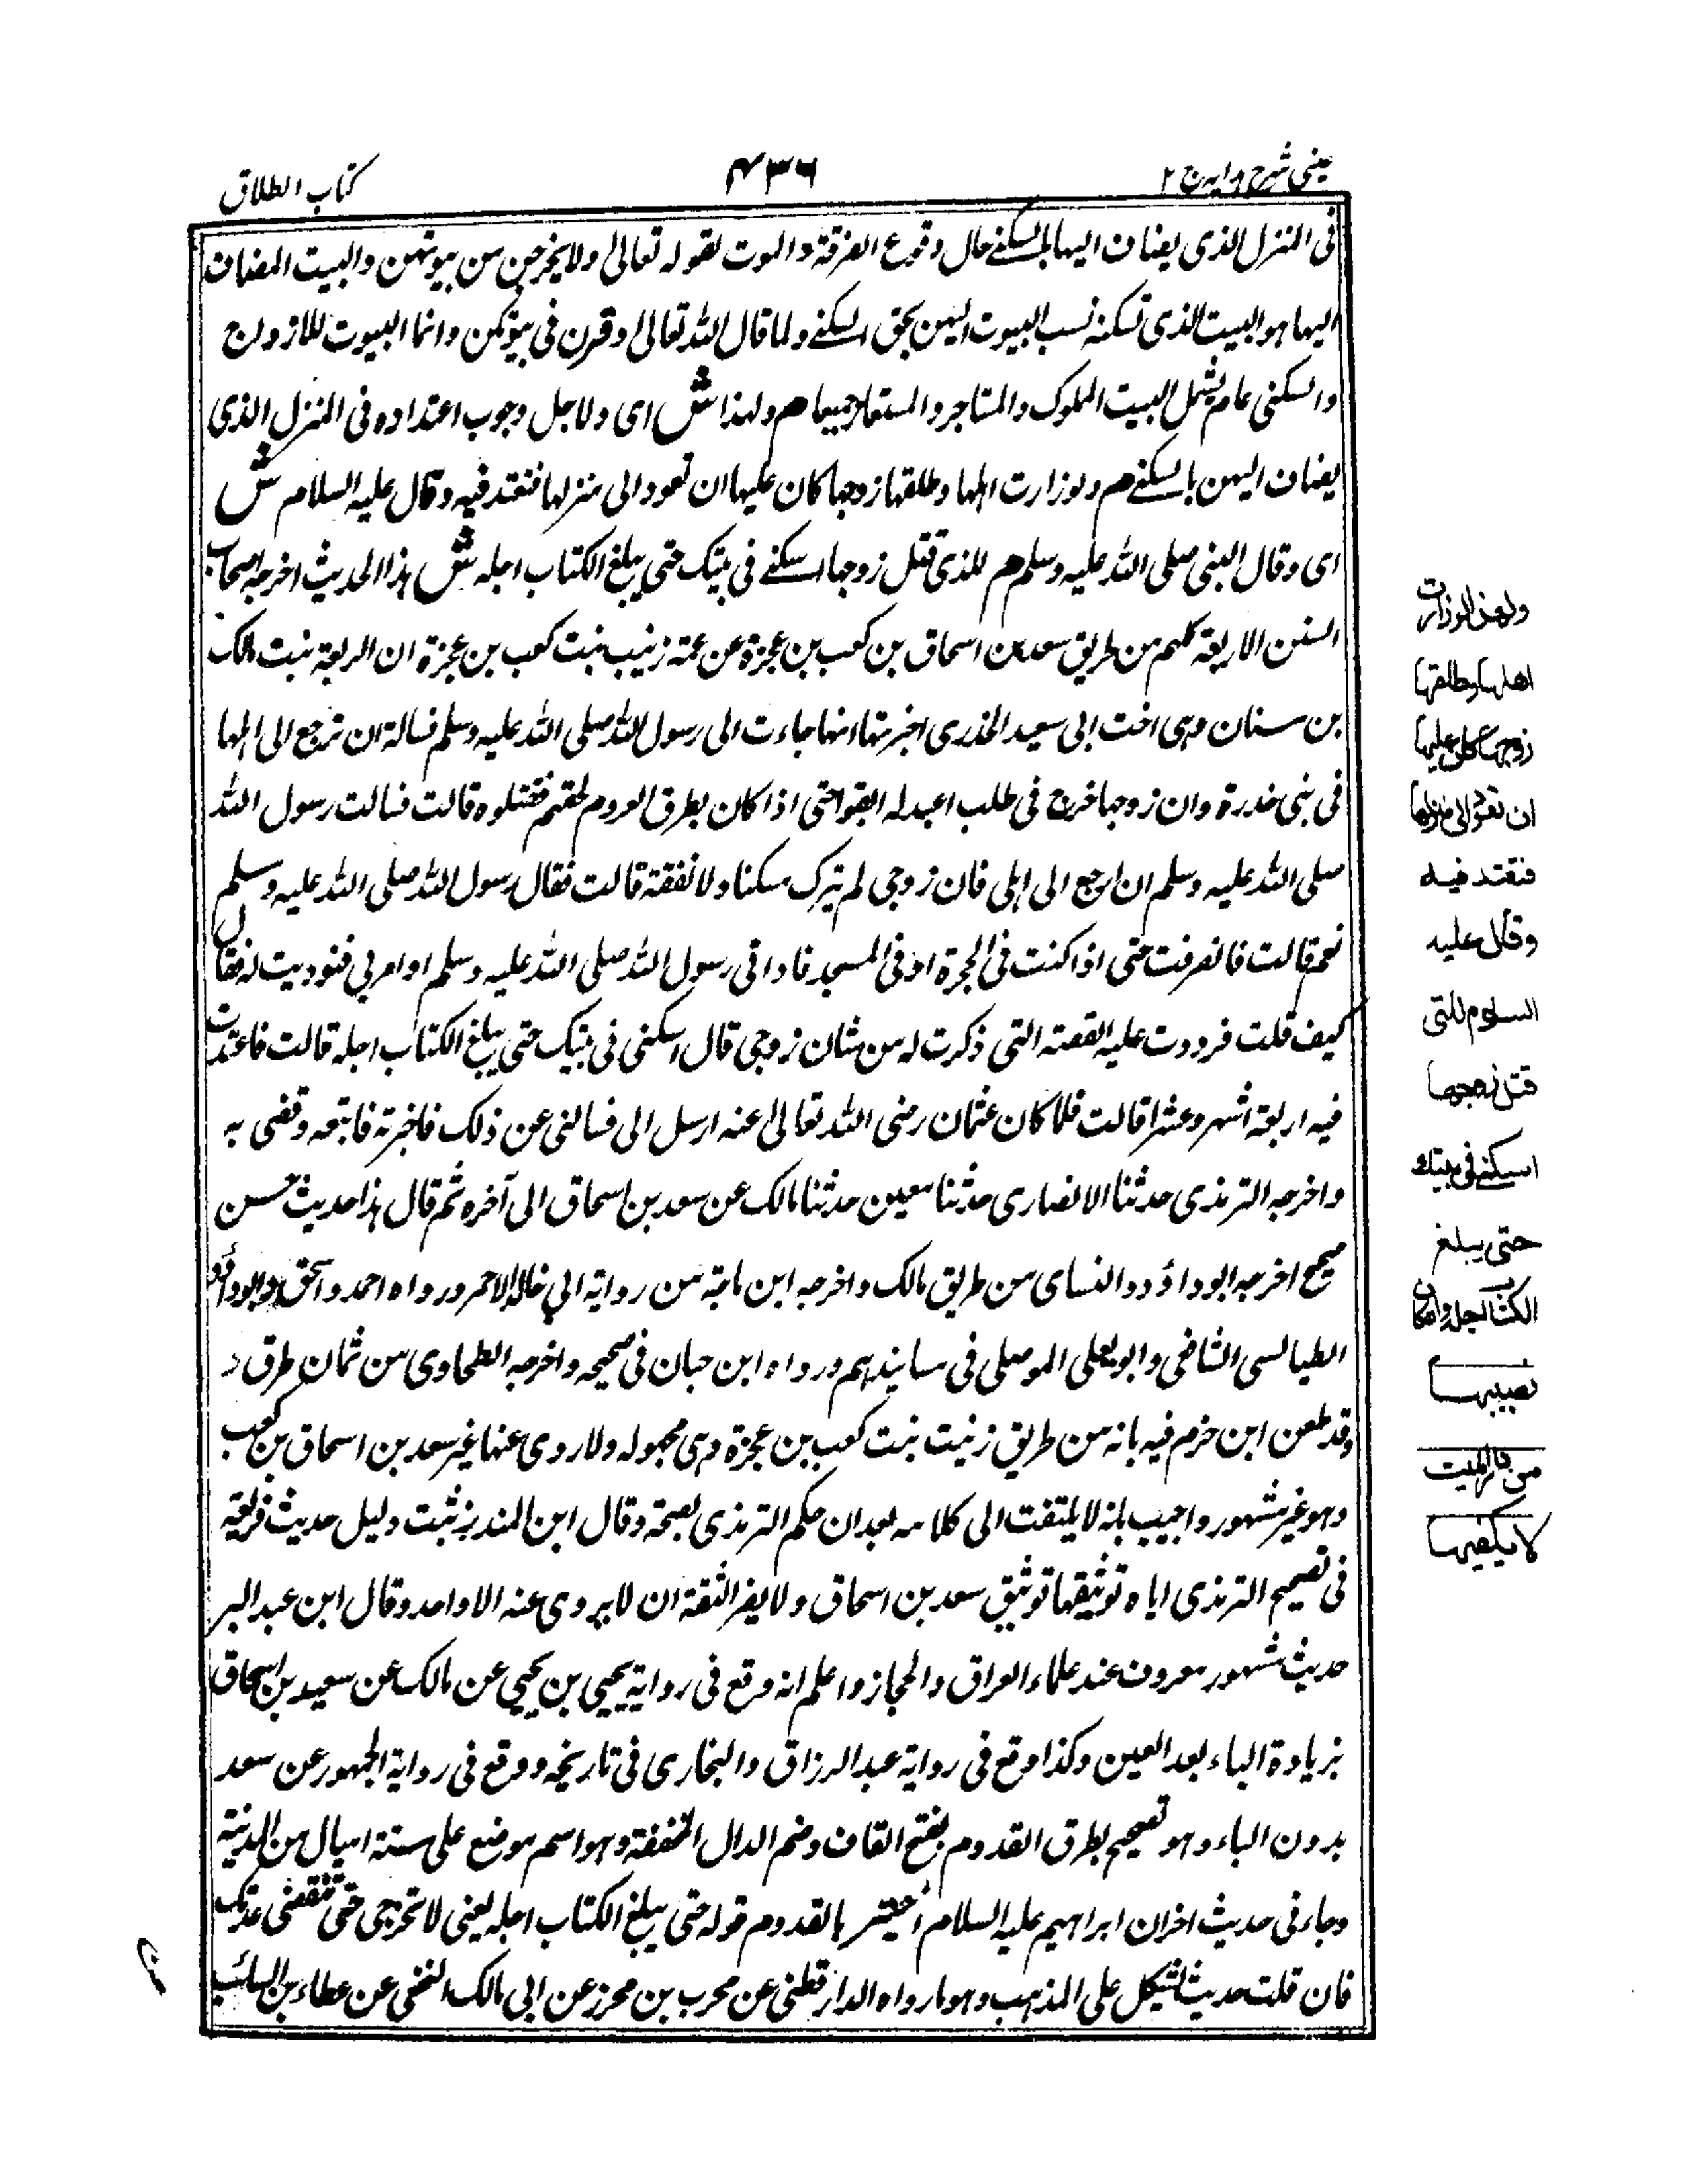 عینی شرح ہدایہ ج ۲
۴۳۶
کتاب الطلاق
فی المنزل الذی یضاف الیہا بالسکنے حال وقوع الفرقۃ و الموت لقولہ تعالی ولا یخرجن من بیوتہن والبیت المضاف
الیہا ہو البیت الذی تسکنہ نسب البیوت الیہن بحق السکنے ولما قال اللہ تعالی وقرن فی بیوتکن وانما البیوت للازواج
والسکنی عام یشمل البیت المملوک والمستاجر والمستعار جمیعا م ولہذا ش ای ولاجل وجوب اعتدادہ فی المنزل الذی
یضاف الیہن بالسکنے م ولو زارت اہلہا وطلقہا زوجہا کان علیہا ان تعود الی منزلہا فتعتد فیہ وقال علیہ السلام ش
ای وقال النبی صلی اللہ علیہ وسلم م للذی قتل زوجہا اسکنے فی بیتک حتی یبلغ الکتاب اجلہ ش ہذا الحدیث اخرجہ اصحاب
السنن الاربعۃ کلہم من طریق سعد بن اسحاق بن کعب بن عجزۃ عن عمتہ زینب بنت کعب بن عجزۃ ان الربعۃ بنت مالک
بن سنان وہی اخت ابی سعید الخدری اخبرتہا انہا جاءت الی رسول اللہ صلی اللہ علیہ وسلم فسالۃ ان ترجع الی اہلہا
فی بنی خدرۃ وان زوجہا خرج فی طلب اعبد لہ ابقوا حتی اذا کان بطرق العروم لحقہم فقتلوہ قالت فسالت رسول اللہ
صلی اللہ علیہ وسلم ان ارجع الی اہلی فان زوجی لم یترک مسکنا ولا نفقۃ قالت فقال رسول اللہ صلی اللہ علیہ وسلم
نعم قالت فانصرفت حتی اذا کنت فی الحجرۃ او فی المسجد نادانی رسول اللہ صلی اللہ علیہ وسلم او امر بی فنودیت لہ فقال
کیف قلت فرددت علیہ القصۃ التی ذکرت لہ من شان زوجی قال اسکنی فی بیتک حتی یبلغ الکتاب اجلہ قالت فاعتدت
فیہ اربعۃ اشہر وعشرا قالت فلما کان عثمان رضی اللہ تعالی عنہ ارسل الی فسالنی عن ذلک فاخبرتہ فاتبعہ وقضی بہ
واخرجہ الترمذی حدثنا الانصاری حدثنا معین حدثنا مالک عن سعد بن اسحاق الی آخرہ ثم قال ہذا حدیث حسن
صحیح اخرجہ ابو داؤد والنسای من طریق مالک واخرجہ ابن ماجۃ من روایۃ ابی خالد الاحمر ورواہ احمد واسحق وابو داؤد
الطیالسی الشافعی وابو یعلی الموصلی فی مسانیدہم ورواہ ابن حبان فی صحیحہ واخرجہ الطحاوی من ثمان طرق
وقد طعن ابن حزم فیہ بانہ من طریق زینت بنت کعب بن عجزۃ وہی مجہولہ ولا روی عنہا غیر سعد بن اسحاق بن کعب
وہو غیر مشہور واجیب بانہ لا یلتفت الی کلامہ بعد ان حکم الترمذی بصحتہ وقال ابن المنذر ثبت دلیل حدیث فریعۃ
فی تصحیح الترمذی ایاہ توثیقہا توثیق سعد بن اسحاق ولا یضر الثقۃ ان لا یروی عنہ الا واحد وقال ابن عبد البر
حدیث مشہور معروف عند علماء العراق والحجاز واعلم انہ وقع فی روایۃ یحیی بن یحیی عن مالک عن سعید بن اسحاق
بزیادۃ الیاء بعد العین وکذا وقع فی روایۃ عبد الرزاق والبخاری فی تاریخہ ووقع فی روایۃ الجمہور عن سعد
بدون الیاء وہو تصحیح بطرق القدوم بفتح القاف وضم الدال المخففۃ وہو اسم موضع علی ستۃ امیال من المدینۃ
وجاء فی حدیث اخر ان ابراہیم علیہ السلام اختتر بالقدوم قولہ حتی یبلغ الکتاب اجلہ یعنی لا تخرجی حتی تنقضی عدتک
فان قلت حدیث یشکل علی المذہب وہو ما رواہ الدارقطنی عن محرب بن محرز عن ابی مالک النخعی عن عطاء بن السائب
ولهذا لو زارت
اهلها وطلقها
زوجها كان عليها
ان تعود الى منزلها
فتعتد فيه
وقال عليه
السلام للتى
قتل زوجها
اسكنے فى بيتك
حتى يبلغ
الكتاب اجله وان كان
نصيبها
من دار الميت
لا يكفيها